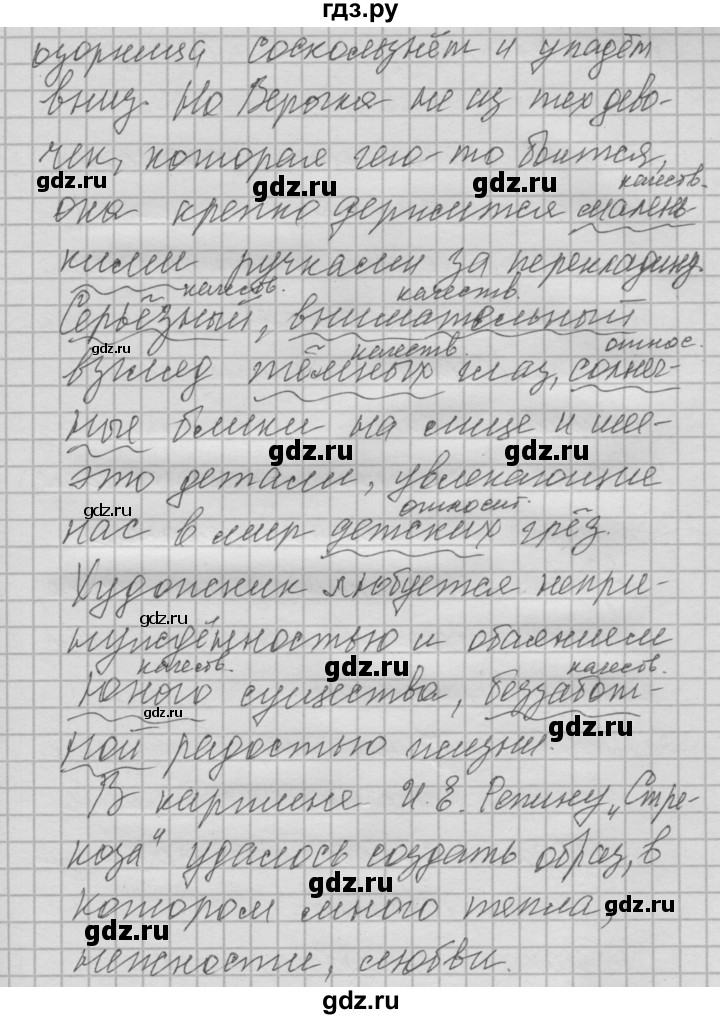 гдз.ру
озорница соскользнёт и упадёт
вниз. Но Верочка не из тех дево-
чек, которая чего-то боится,
gdz.ru gdz.ru gdz.ru
качеств.
она крепко держится малень
кими ручками за перекладину.
качеств. качеств.
Серьёзный, внимательный
gdz.ru качеств. относ.
взгляд тёмных глаз, солнеч-
ные блики на лице и шее-
gdz.ru gdz.ru
это детали, увлекающие
gdz.ru относит.
нас в мир детских грёз.
Художник любуется непри-
gdz.ru
нуждённостью и обаянием
качеств. gdz.ru качеств.
юного существа, беззабот-
gdz.ru
ной радостью жизни.
gdz.ru
В картине И. Е. Репину „Стре-
коза" удалось создать образ, в
gdz.ru
котором много тепла,
gdz.ru gdz.ru
нежности, любви.
gdz.ru